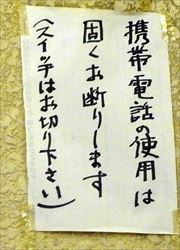 携帯電話の使用は
固くお断りします
(スイッチはお切り下さい)